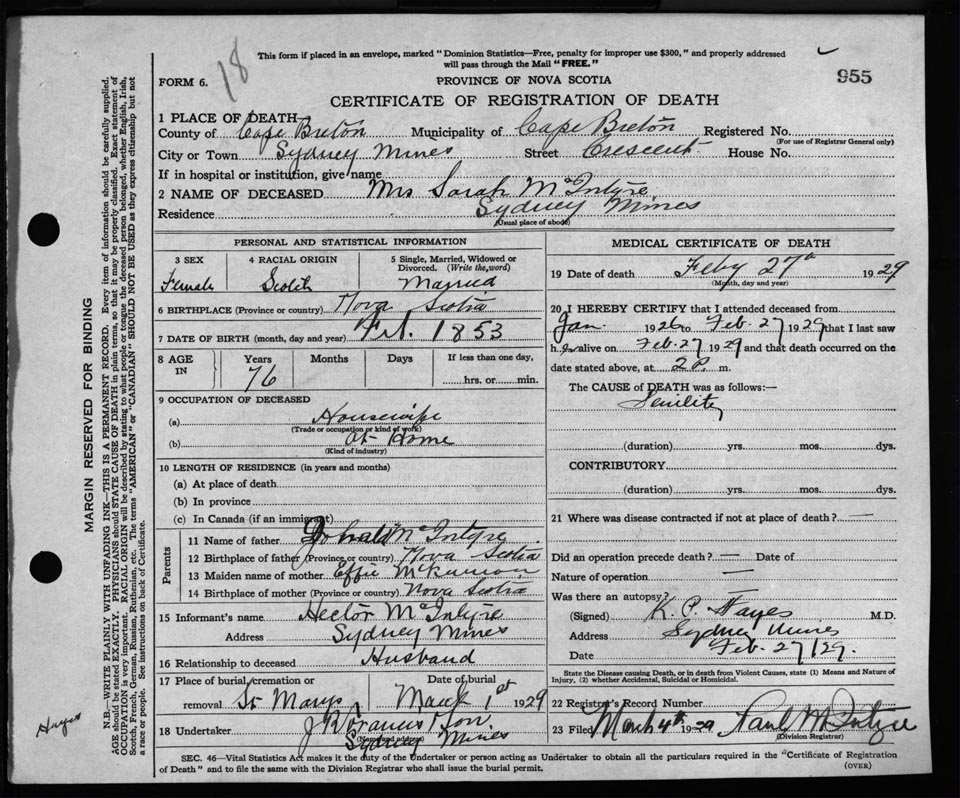 This form if placed in an envelope, marked "Dominion Statistics—Free, penalty for improper use $300," and properly addressed
will pass through the Mail "FREE."
18
955
FORM 6.
PROVINCE OF NOVA SCOTIA
CERTIFICATE OF REGISTRATION OF DEATH
1 PLACE OF DEATH
County of Cape Breton Municipality of Cape Breton Registered No.
(For use of Registrar General only)
City or Town Sydney Mines Street Crescent House No.
If in hospital or institution, give name
2 NAME OF DECEASED Mrs Sarah McIntyre
Residence Sydney Mines
(Usual place of abode)
PERSONAL AND STATISTICAL INFORMATION
3 SEX 4 RACIAL ORIGIN 5 Single, Married, Widowed or
Divorced. (Write the word)
Female Scotch Married
6 BIRTHPLACE (Province or country) Nova Scotia
7 DATE OF BIRTH (month, day and year) Feb. 1853
8 AGE IN Years Months Days If less than one day,
76 hrs. or min.
9 OCCUPATION OF DECEASED
(a) Housewife
(Trade or occupation or kind of work)
(b) At Home
(Kind of industry)
10 LENGTH OF RESIDENCE (in years and months)
(a) At place of death
(b) In province
(c) In Canada (if an immigrant)
Parents
11 Name of father Donald McIntyre
12 Birthplace of father (Province or country) Nova Scotia
13 Maiden name of mother Effie McKinnon
14 Birthplace of mother (Province or country) Nova Scotia
15 Informant's name Hector McIntyre
Address Sydney Mines
16 Relationship to deceased Husband
17 Place of burial, cremation or Date of burial
removal St. Marys March 1st 1929
18 Undertaker Son.
(Name and address)
Sydney Mines
MEDICAL CERTIFICATE OF DEATH
19 Date of death Feby 27th 1929
(Month, day and year)
20 I HEREBY CERTIFY that I attended deceased from
Jan. 1926 to Feb. 27 1929 that I last saw
her alive on Feb. 27 1929 and that death occurred on the
date stated above, at 2 P. m.
The CAUSE of DEATH was as follows:—
Senility
(duration) yrs. mos. dys.
CONTRIBUTORY
(duration) yrs. mos. dys.
21 Where was disease contracted if not at place of death? —
Did an operation precede death? — Date of
Nature of operation —
Was there an autopsy?
(Signed) K. P. Hayes M.D.
Address Sydney Mines
Date Feb. 27/29.
State the Disease causing Death, or in death from Violent Causes, state (1) Means and Nature of
Injury, (2) whether Accidental, Suicidal or Homicidal.
22 Registrar's Record Number
23 Filed March 4th 1929 Paul McIntyre
(Division Registrar)
SEC. 46—Vital Statistics Act makes it the duty of the Undertaker or person acting as Undertaker to obtain all the particulars required in the "Certificate of Registration
of Death" and to file the same with the Division Registrar who shall issue the burial permit.
(OVER)
MARGIN RESERVED FOR BINDING
N.B.—WRITE PLAINLY WITH UNFADING INK—THIS IS A PERMANENT RECORD. Every item of information should be carefully supplied.
AGE should be stated EXACTLY. PHYSICIANS should STATE CAUSE OF DEATH in plain terms, so that it may be properly classified. Exact statement of
OCCUPATION is very important. RACIAL ORIGIN will be described by stating to what people or tongue the deceased person belonged, whether English, Irish,
Scotch, French, German, Russian, Ruthenian, etc. The terms "AMERICAN" or "CANADIAN" SHOULD NOT BE USED as they express citizenship but not
a race or people. See instructions on back of Certificate.
Hayes